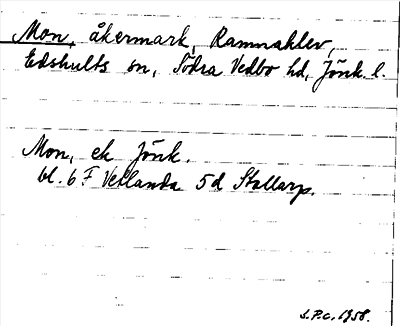 Mon, åkermark, Ramnahlev,
Edshults sn, Södra Vedbo hd, Jönk. l.
Mon, ek Jönk.
bl. 6 F Vetlanda 5 d Stallarp.
S.P.C. 1958.